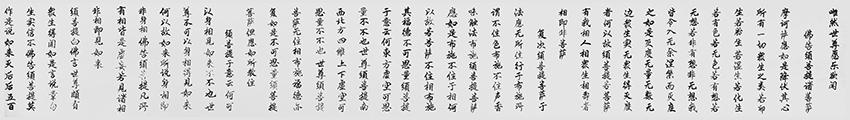 唯然世尊願樂欲聞
佛告須菩提諸菩薩
摩訶薩應如是降伏其心
所有一切眾生之類若卵
生若胎生若濕生若化生
若有色若無色若有想若
無想若非有想非無想我
皆令入無餘涅槃而滅度
之如是滅度無量無數無
邊眾生實無眾生得滅度
者何以故須菩提若菩薩
有我相人相眾生相壽者
相即非菩薩
復次須菩提菩薩於
法應無所住行於布施所
謂不住色布施不住聲香
味觸法布施須菩提菩薩
應如是布施不住於相何
以故若菩薩不住相布施
其福德不可思量須菩提
於意云何東方虛空可思
量不不也世尊須菩提南
西北方四維上下虛空可
思量不不也世尊須菩提
菩薩無住相布施福德亦
復如是不可思量須菩提
菩薩但應如所教住
須菩提於意云何可
以身相見如來不不也世
尊不可以身相得見如來
何以故如來所說身相即
非身相佛告須菩提凡所
有相皆是虛妄若見諸相
非相即見如來
須菩提白佛言世尊頗有
眾生得聞如是言說章句
生實信不佛告須菩提莫
作是說如來滅後後五百